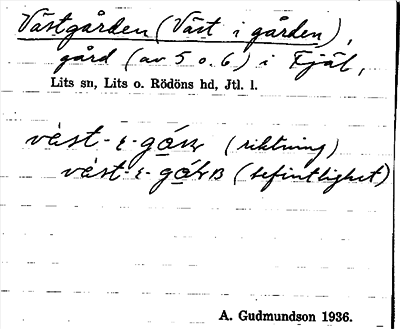 Västgården (Väst i gården),
gård (av 5 o. 6) i Fjäl,
Lits sn, Lits o. Rödöns hd, Jtl. l.
(riktning)
(befintlighet)
A. Gudmundson 1936.